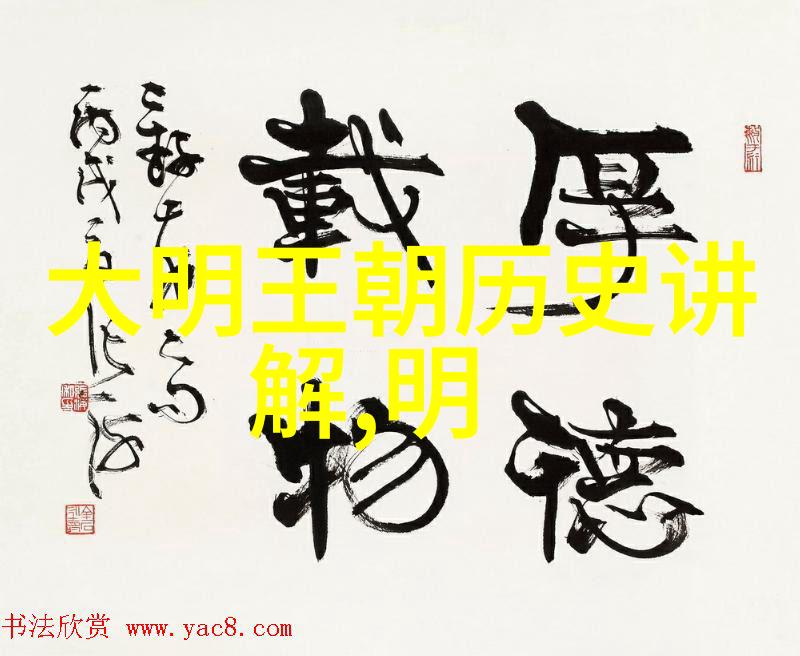 厚德
載物
丙戌
大明王朝历史讲
解,明
书法欣赏 www.yac8.com